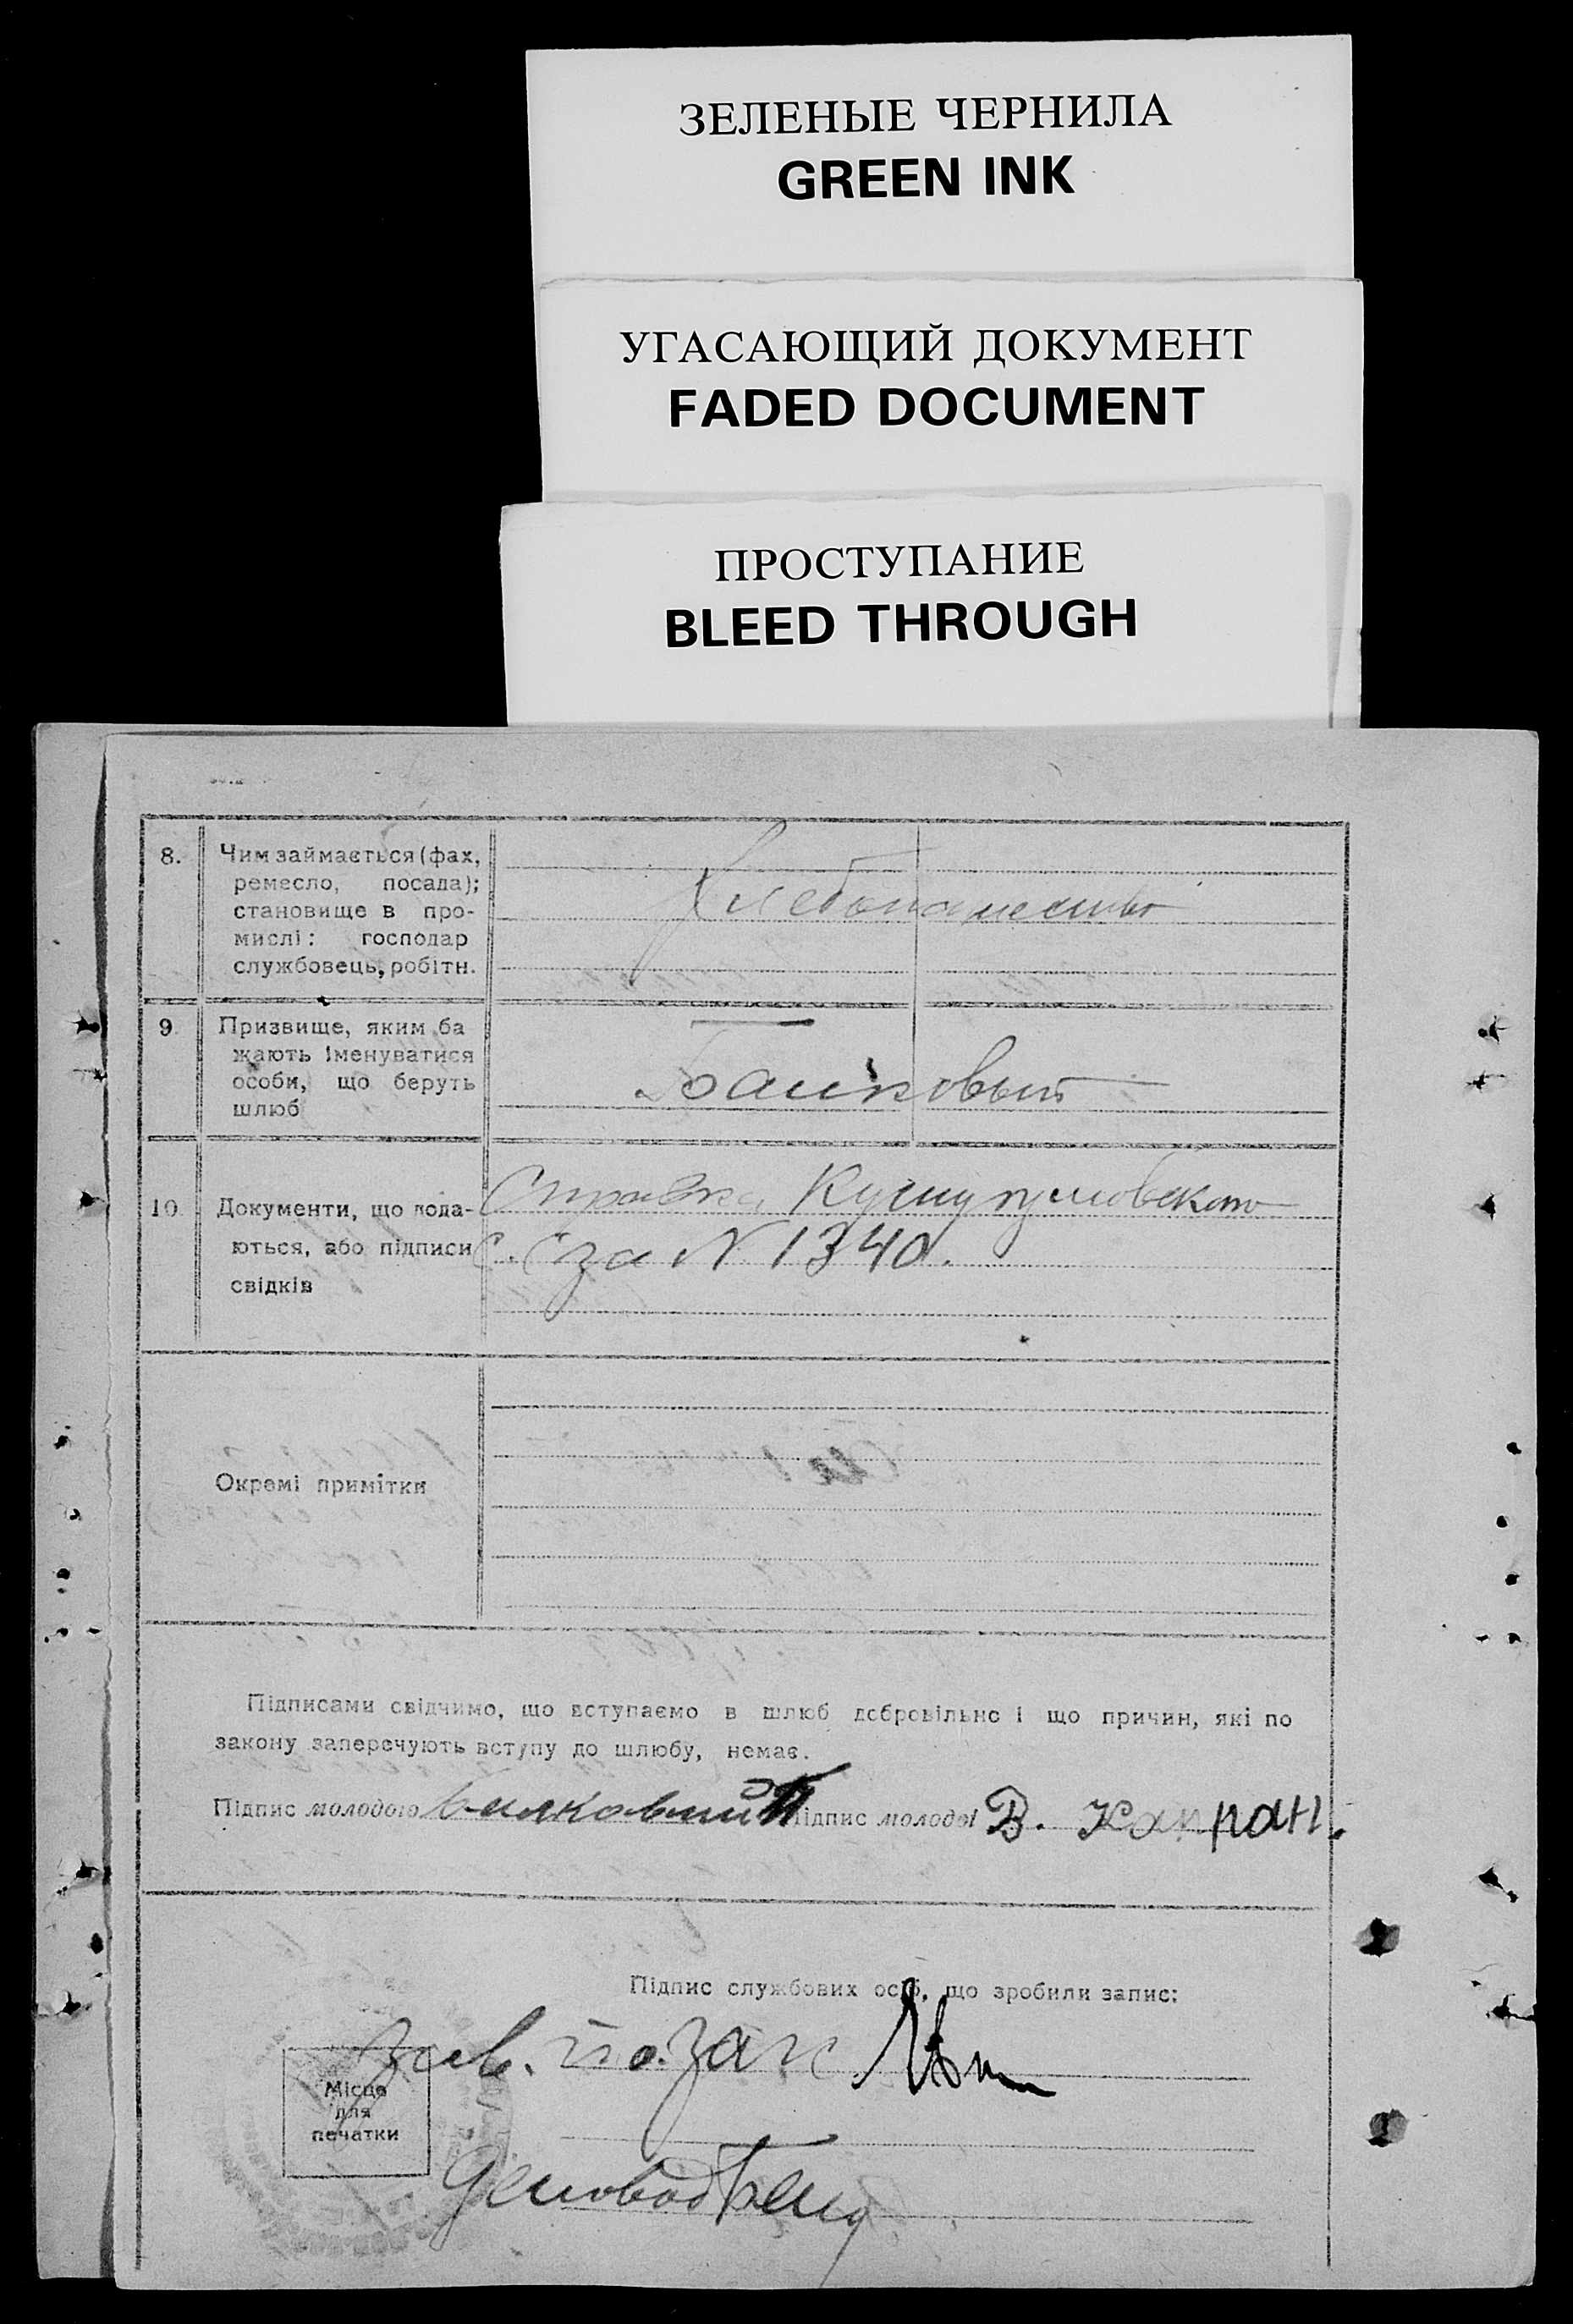 ЗЕЛЕНЫЕ ЧЕРНИЛА
GREEN INK
УГАСАЮЩИЙ ДОКУМЕНТ
FADED DOCUMENT
ПРОСТУПАНИЕ
BLEED THROUGH
8. Чим займається (фах,
ремесло, посада);
становище в про-
мислі: господар
службовець, робітн.
Хлебопашество
9. Призвище, яким ба
жають іменуватися
особи, що беруть
шлюб
10. Документи, що пода-
ються, або підписи
свідків
Справка
С.С за N 1340.
Окремі примітки
Підписами свідчимо, що вступаємо в шлюб добровільно і що причин, які по
закону заперечують вступу до шлюбу, немає.
Підпис молодого Підпис молодої В. Каппан.
Підпис службових осіб, що зробили запис:
зав.
Місце
для
печатки
Деловод